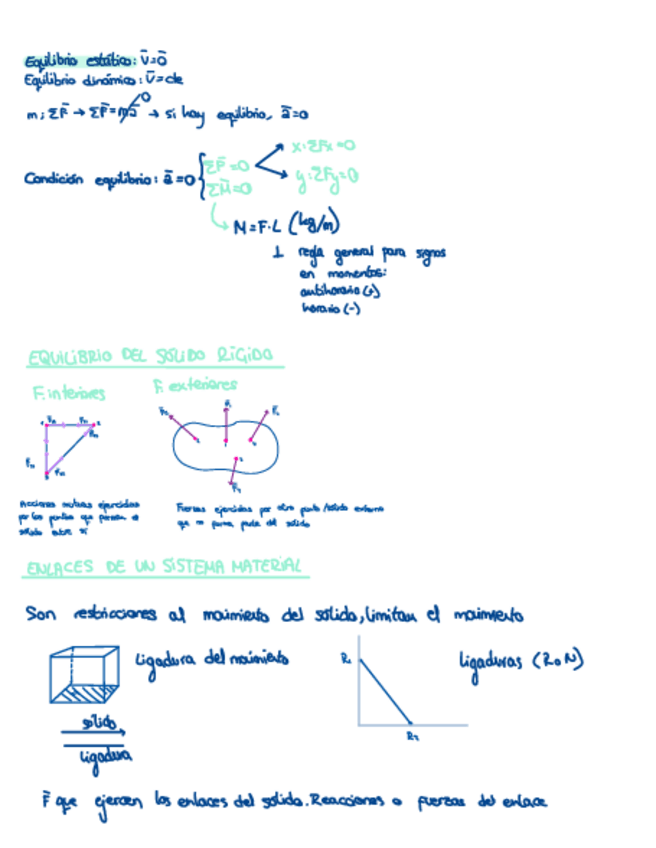 Equilibrio estático: v̄=0̄
Equilibrio dinámico: v̄=cte
m; ΣF̄ → ΣF̄=mā 0 → si hay equilibrio, ā=0
x: ΣFx=0
Condición equilibrio: ā=0 { ΣF̄=0
ΣM̄=0
y: ΣFy=0
M=F·L (kg/m)
⊥ regla general para signos
en momentos:
antihorario (+)
horario (-)
EQUILIBRIO DEL SÓLIDO RÍGIDO
F. interiores
F. exteriores
Acciones mutuas ejercidas
por los puntos que forman el
sólido entre sí
Fuerzas ejercidas por otro punto/sólido externo
que no forma parte del sólido
ENLACES DE UN SISTEMA MATERIAL
Son restricciones al movimiento del sólido, limitan el movimiento
Ligadura del movimiento
R₁
ligaduras (R o N)
sólido
ligadura
R₂
F̄ que ejercen los enlaces del sólido. Reacciones o fuerzas del enlace